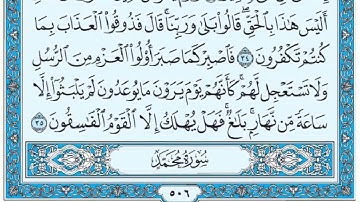 أَلَيْسَ هَٰذَا بِالْحَقِّ ۖ قَالُوا بَلَىٰ وَرَبِّنَا ۚ قَالَ فَذُوقُوا الْعَذَابَ بِمَا
كُنتُمْ تَكْفُرُونَ ٣٤ فَاصْبِرْ كَمَا صَبَرَ أُولُوا الْعَزْمِ مِنَ الرُّسُلِ
وَلَا تَسْتَعْجِل لَّهُمْ ۚ كَأَنَّهُمْ يَوْمَ يَرَوْنَ مَا يُوعَدُونَ لَمْ يَلْبَثُوا إِلَّا
سَاعَةً مِّن نَّهَارٍ ۚ بَلَاغٌ ۚ فَهَلْ يُهْلَكُ إِلَّا الْقَوْمُ الْفَاسِقُونَ ٣٥
سُورَةُ مُحَمَّد
٥٠٦